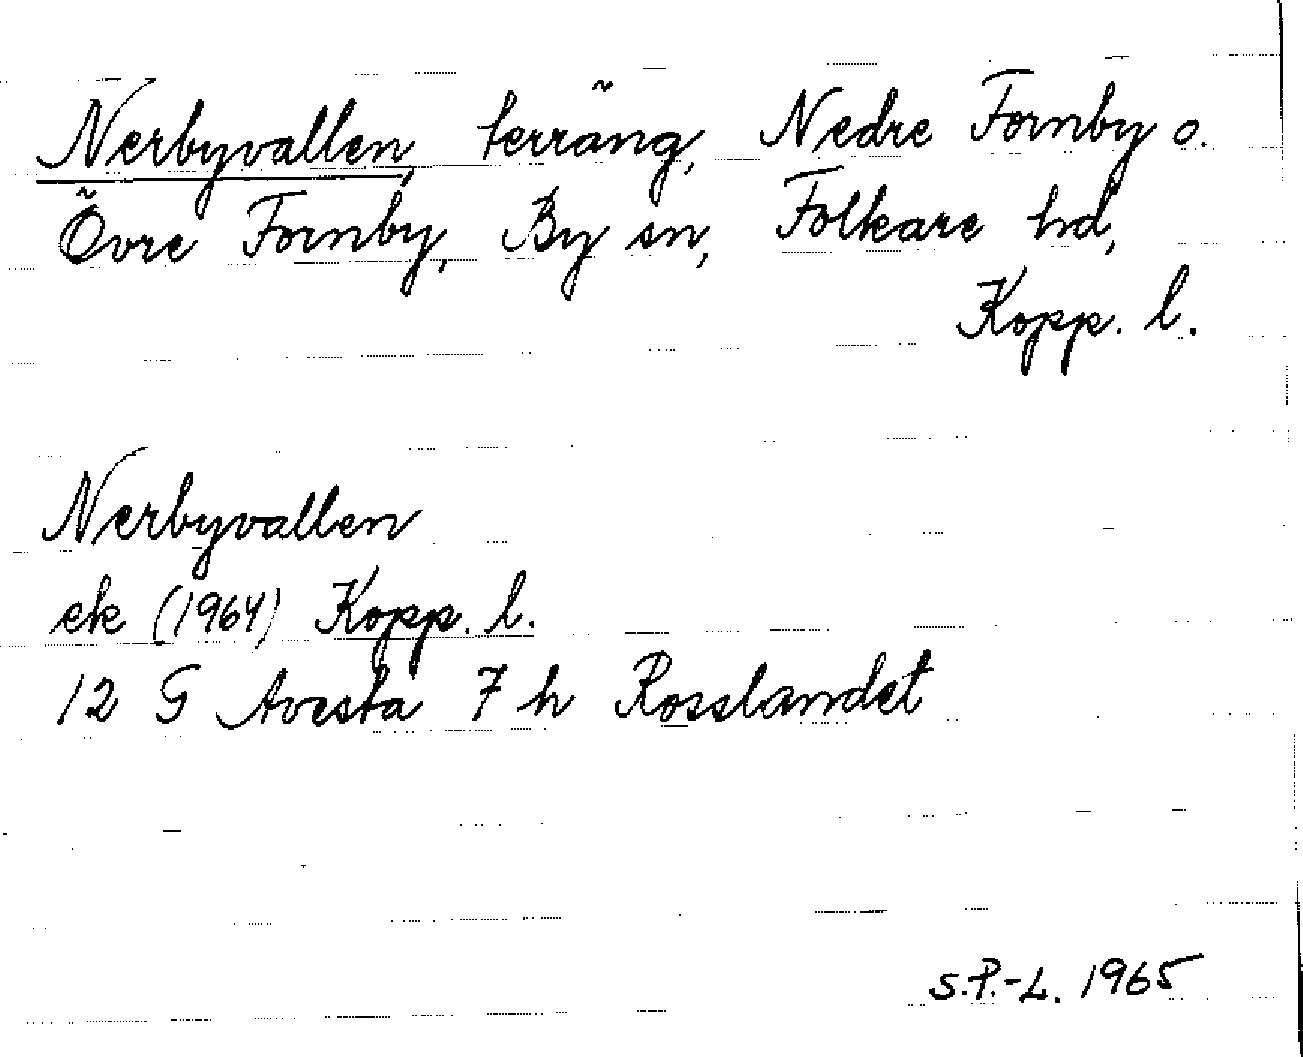 Nerbyvallen, terräng, Nedre Fornby o.
Övre Fornby, By sn, Folkare hd,
Kopp. l.
Nerbyvallen
ek (1964) Kopp. l.
12 G Avesta 7 h Rosslandet
S.P.-L. 1965